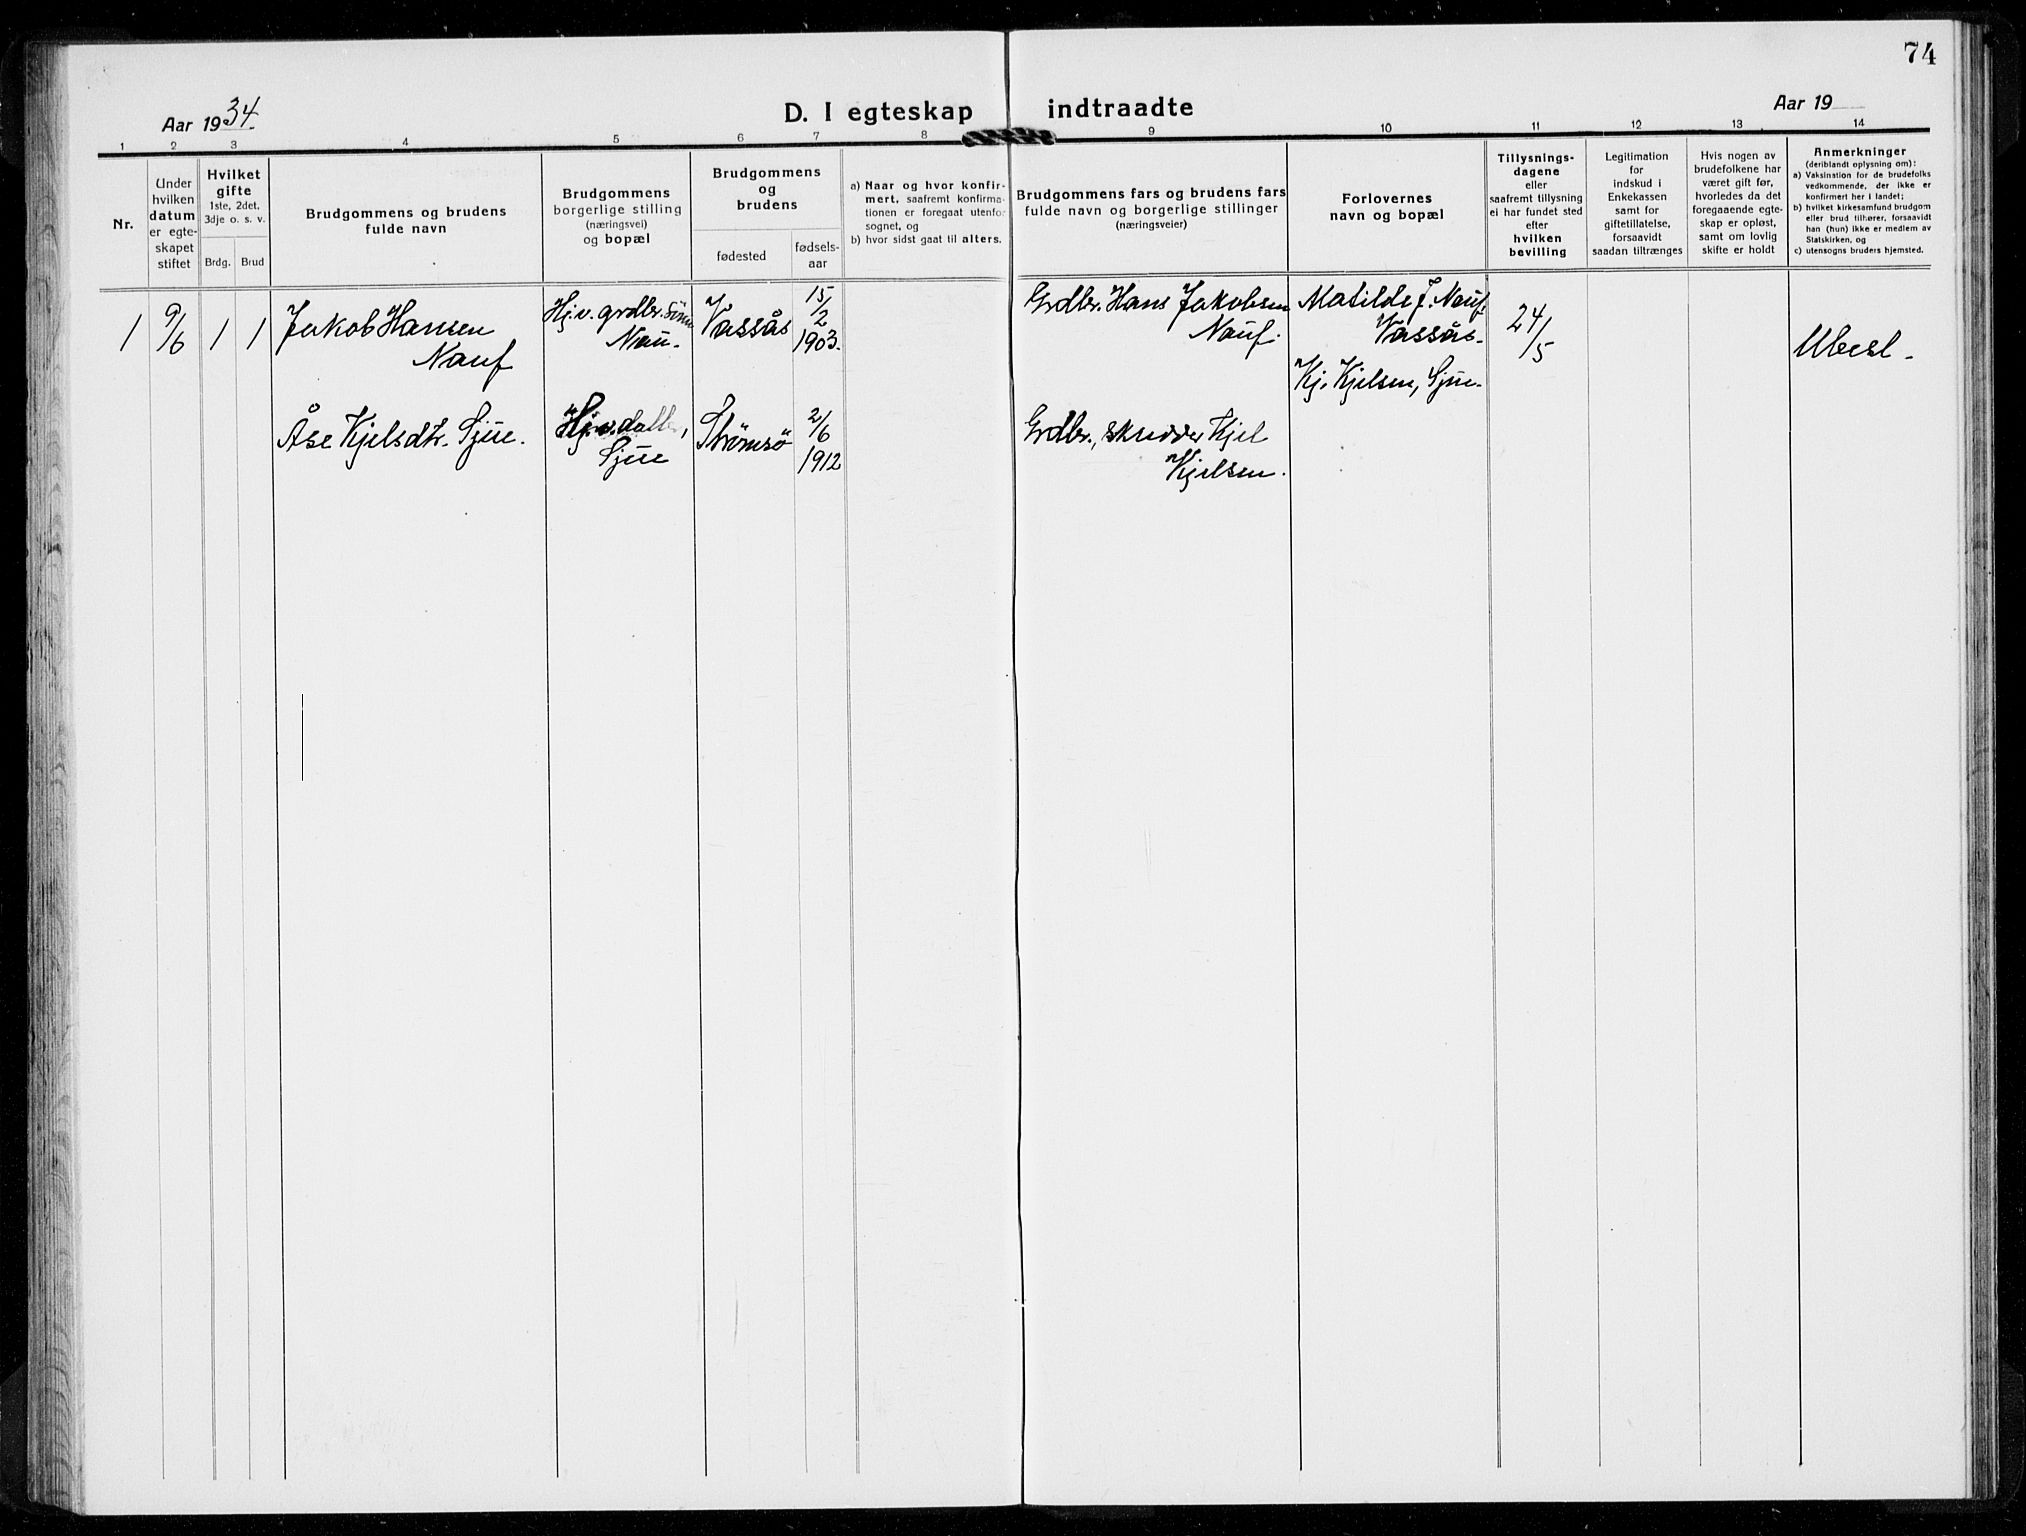 74
Aar 1934.
D. I egteskap indtraadte
Aar 19
1 2 3 4 5 6 7 8 9 10 11 12 13 14
Nr.
Under
hvilken
datum
er egte-
skapet
stiftet
Hvilket
gifte
1ste, 2det,
3dje o. s. v.
Brdg. Brud
Brudgommens og brudens
fulde navn
Brudgommens
borgerlige stilling
(næringsvei)
og bopæl
Brudgommens
og
brudens
fødested
fødsels-
aar
a) Naar og hvor konfir-
mert, saafremt konfirma-
tionen er foregaat utenfor
sognet, og
b) hvor sidst gaat til alters.
Brudgommens fars og brudens fars
fulde navn og borgerlige stillinger
(næringsveier)
Forlovernes
navn og bopæl
Tillysnings-
dagene
eller
saafremt tillysning
ei har fundet sted
efter
hvilken
bevilling
Legitimation
for
indskud i
Enkekassen
samt for
giftetillatelse,
forsaavidt
saadan tiltrænges
Hvis nogen av
brudefolkene har
været gift før,
hvorledes da det
foregaaende egte-
skap er opløst,
samt om lovlig
skifte er holdt
Anmerkninger
(deriblandt oplysning om):
a) Vaksination for de brudefolks
vedkommende, der ikke er
konfirmert her i landet;
b) hvilket kirkesamfund brudgom
eller brud tilhører, forsaavidt
han (hun) ikke er medlem av
Statskirken, og
c) utensogns bruders hjemsted.
1 9/6 1 1
Jakob Hansen
Nauf
Hj.v. grdbr. sönn
Nau.
Vassås
15/2
1903.
Grdbr. Hans Jakobsen
Nauf.
Matilde J. Nauf
Vassås.
Kj. Kjelsen, Sjue.
24/5
Ubesl.
Åse Kjelsdtr. Sjue.
Sjue
Strömsö
2/6
1912
Grdbr., skredder Kjel
Kjelsen.